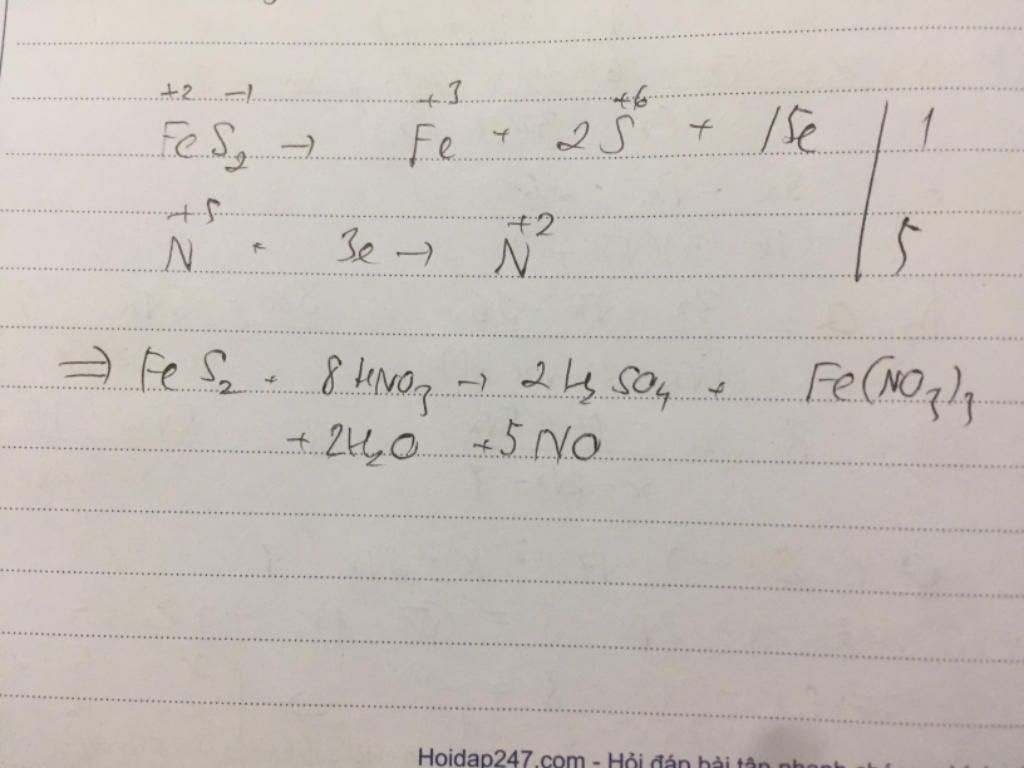 +2 -1 +3 +6
FeS2 → Fe + 2S + 15e | 1
+5 +2
N + 3e → N | 5
⇒ FeS2 + 8HNO3 → 2H2SO4 + Fe(NO3)3
+ 2H2O + 5NO
Hoidap247.com - Hỏi đáp bài tập nhanh